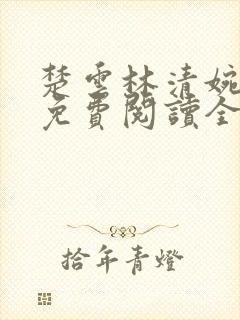 楚雲林清婉
免費閱讀全
拾年青燈